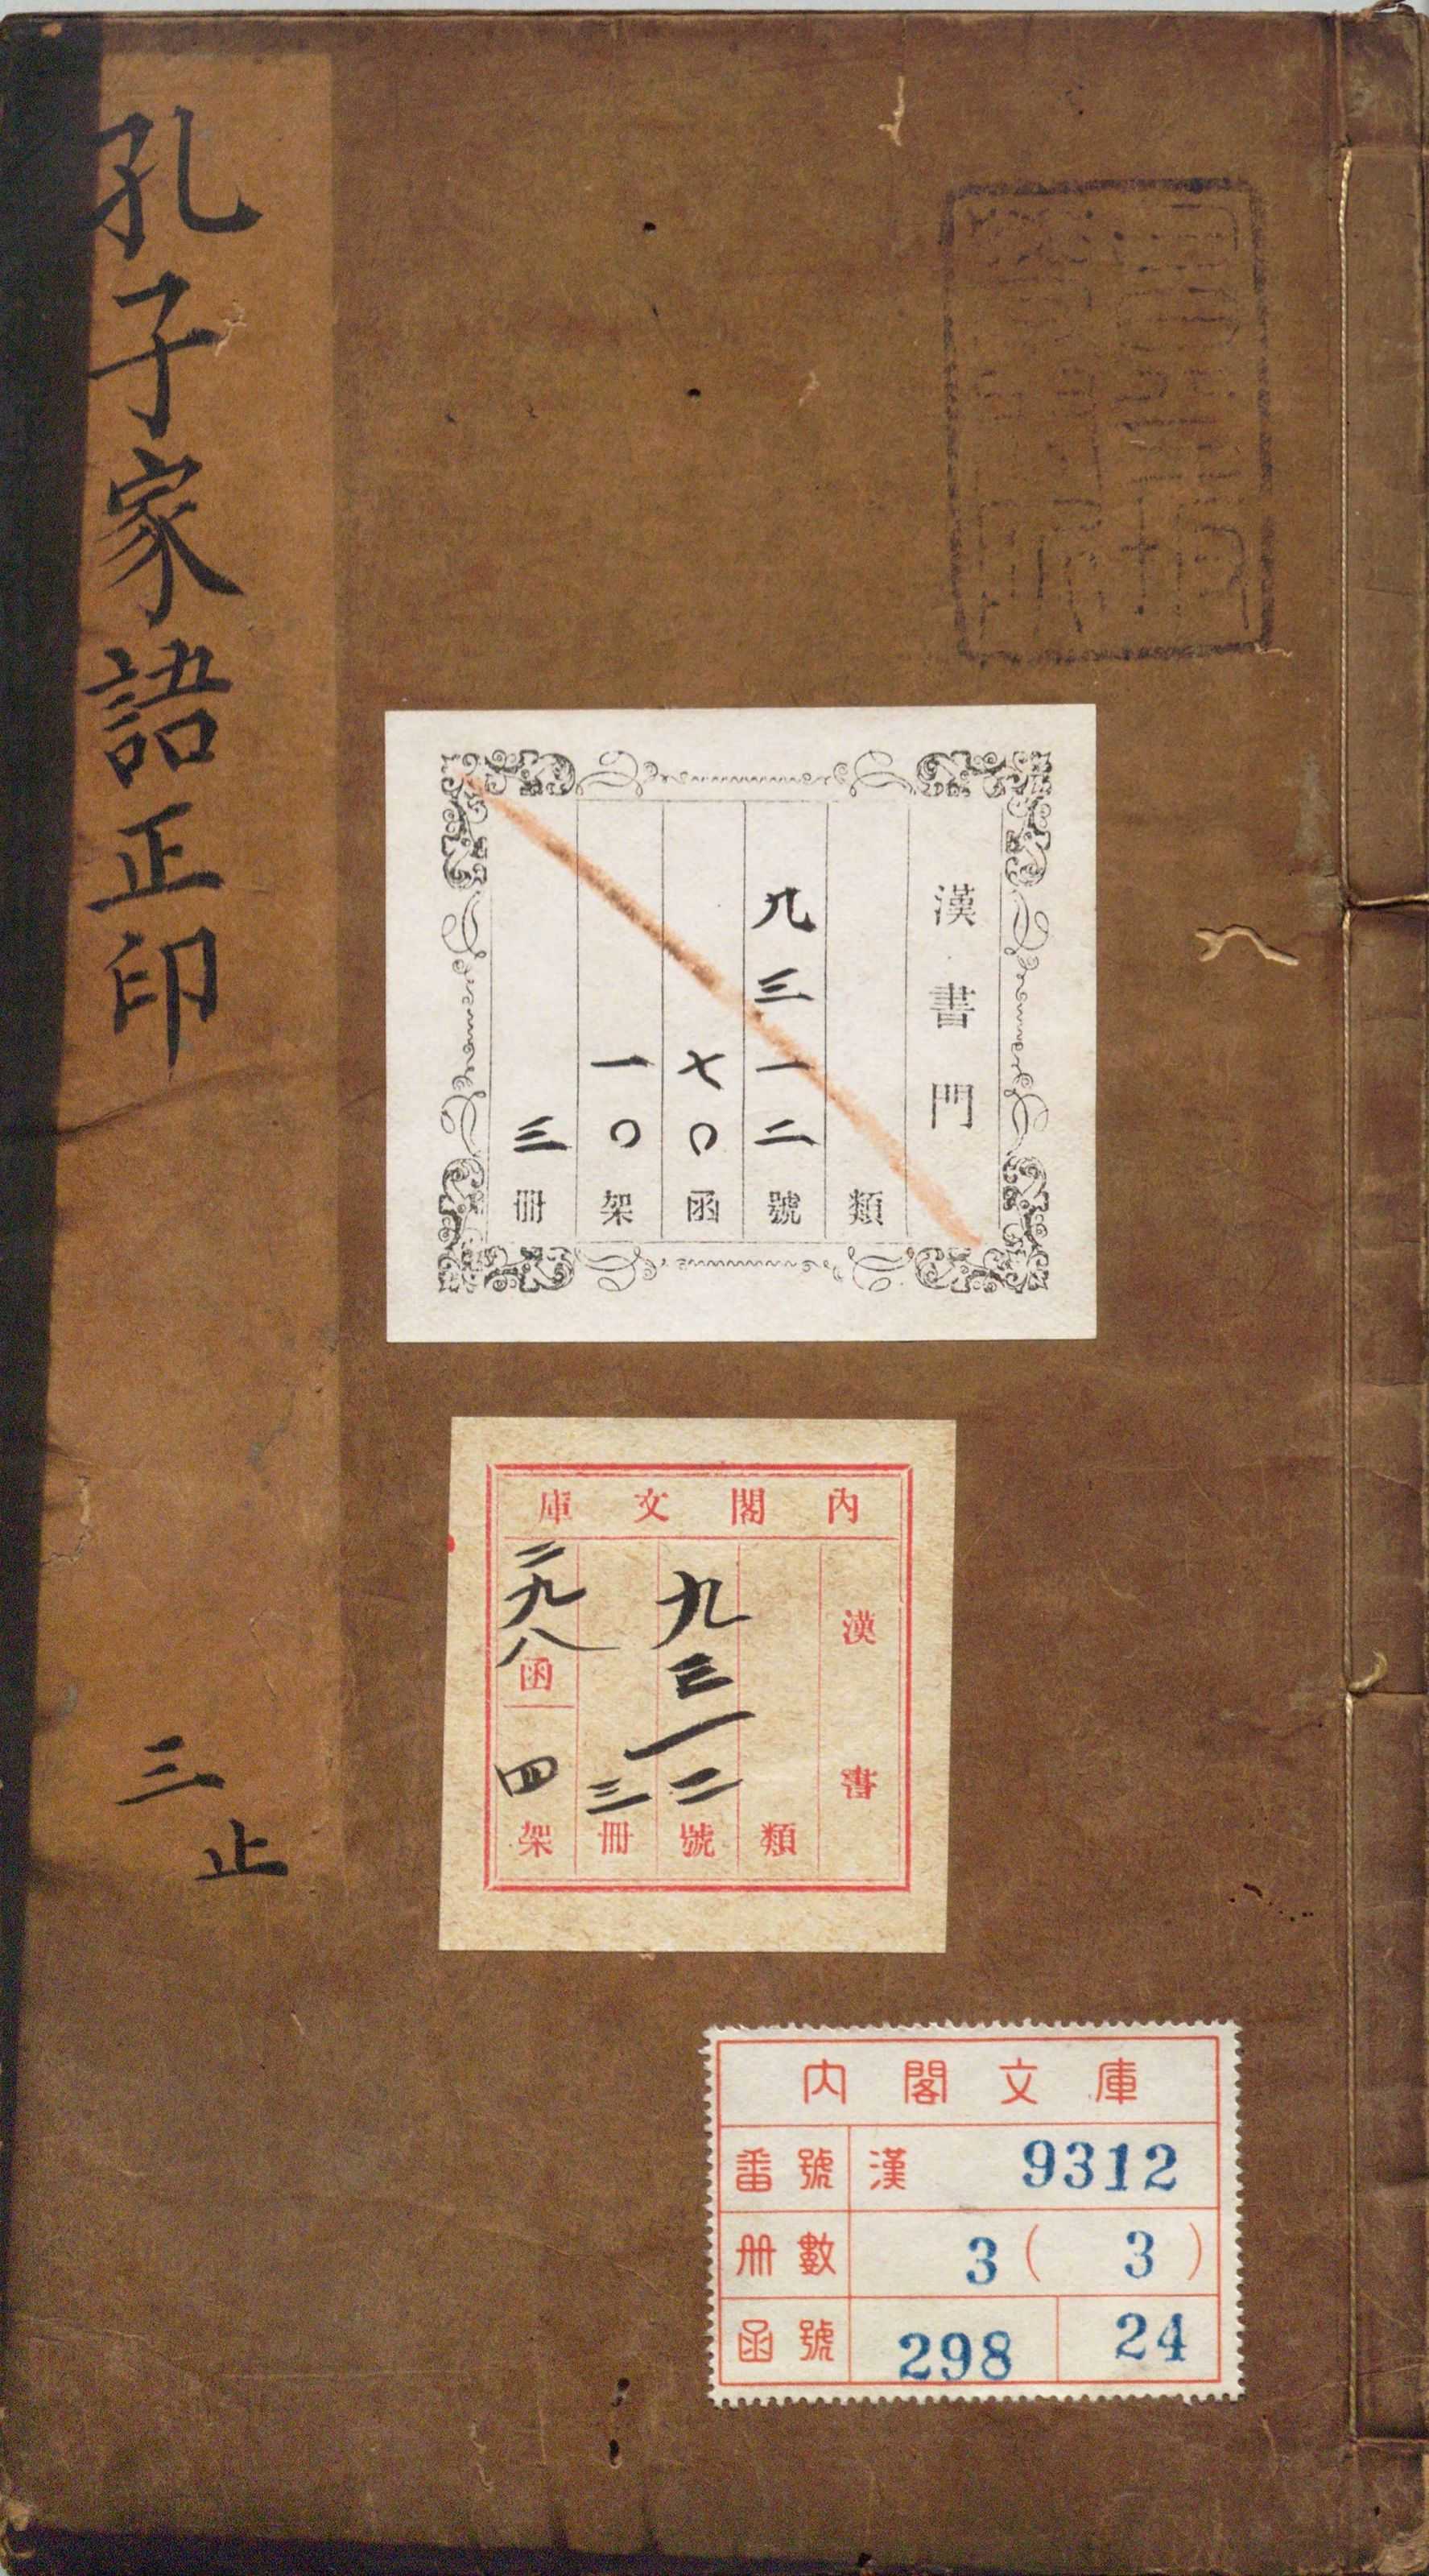 孔子家語正印
三止
漢書門
類
九三一二號
七〇函
一〇架
三冊
內閣文庫
漢書
類
九三一二號
三冊
二九八函
四架
內閣文庫
番號 漢 9312
冊數 3(3)
函號 298 24